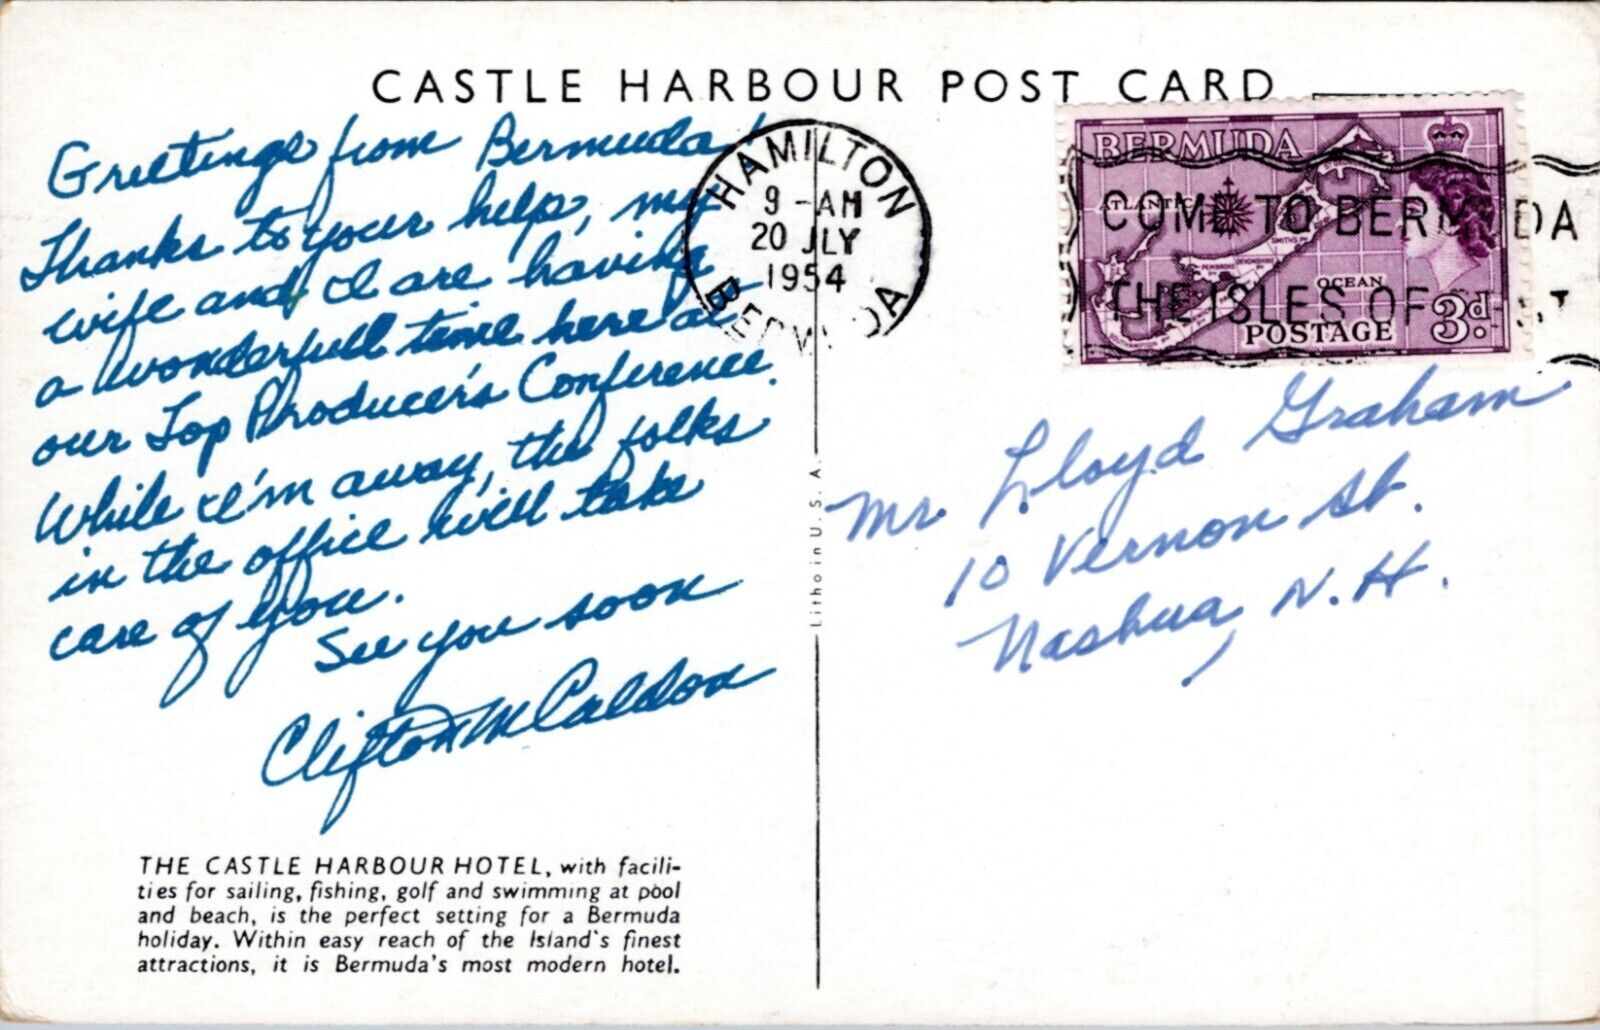 CASTLE HARBOUR POST CARD
Greetings from Bermuda!
Thanks to your help, my
wife and I are having
a wonderfull time here at
our Top Producer's Conference.
While I'm away, the folks
in the office will take
care of you.
See you soon
Clifton McCaldon
THE CASTLE HARBOUR HOTEL, with facili-
ties for sailing, fishing, golf and swimming at pool
and beach, is the perfect setting for a Bermuda
holiday. Within easy reach of the Island's finest
attractions, it is Bermuda's most modern hotel.
Litho in U. S. A.
HAMILTON
9 - AM
20 JLY
1954
BERMUDA
BERMUDA
ATLANTIC
SMITHS
DEVONSHIRE
OCEAN
POSTAGE
3d.
COME TO BERMUDA
THE ISLES OF
Mr Lloyd Graham
10 Vernon St.
Nashua, N.H.